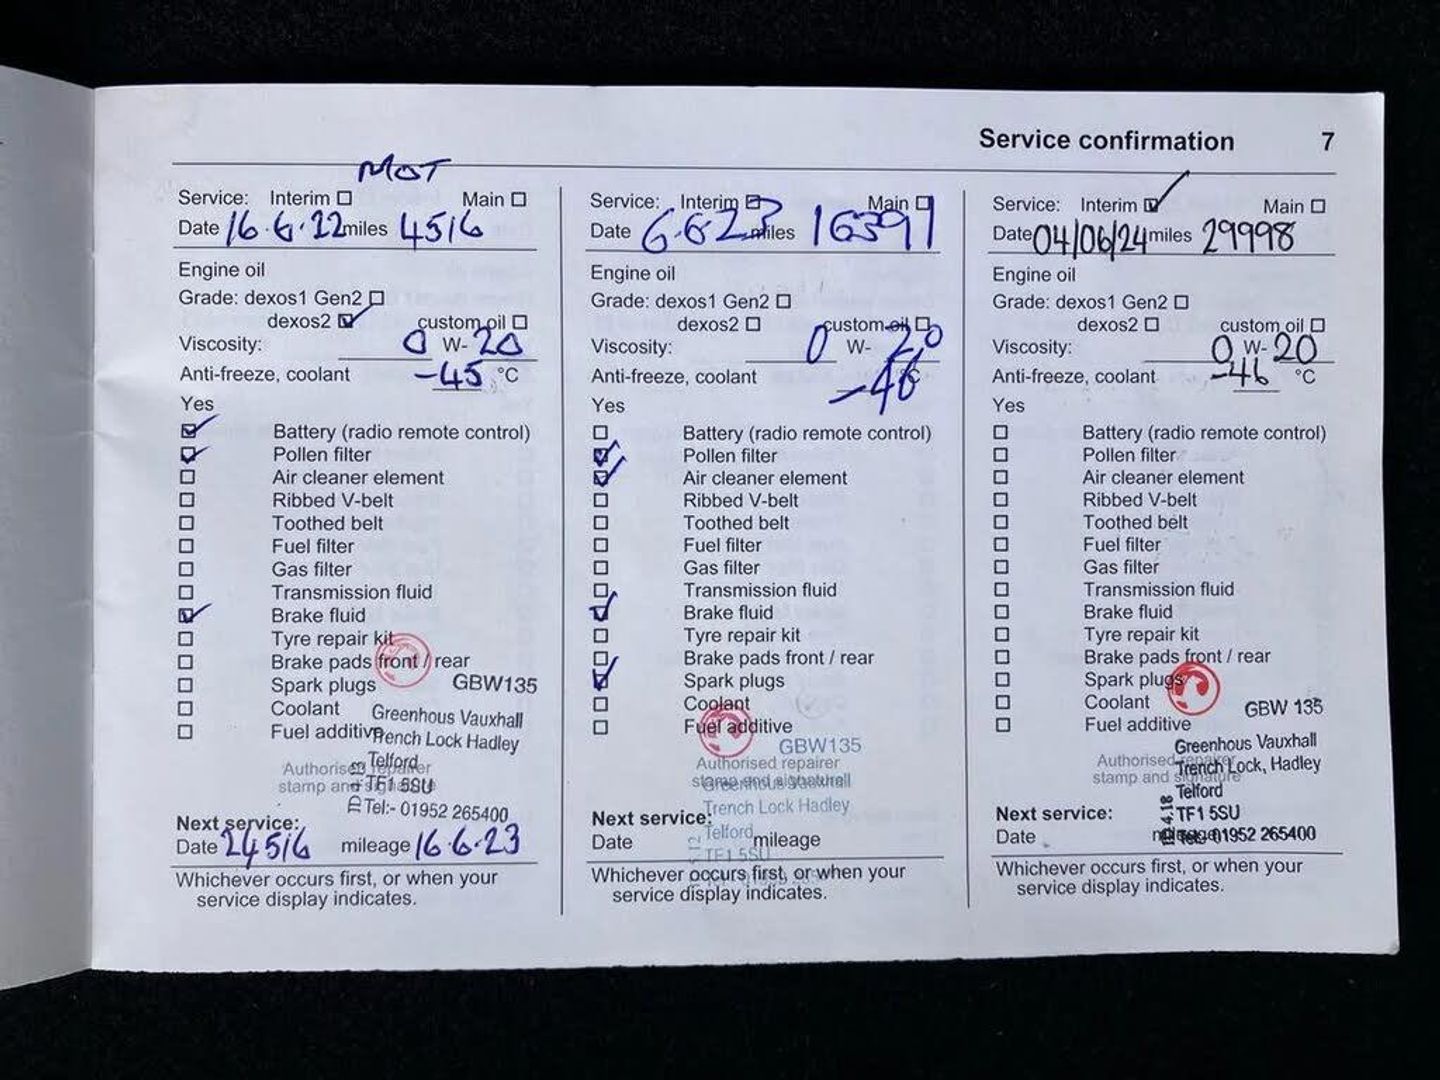 Service confirmation 7
MOT
Service: Interim Main
Date 16.6.22 miles 4516
Engine oil
Grade: dexos1 Gen2
dexos2 custom oil
Viscosity: 0 W- 20
Anti-freeze, coolant -45 °C
Yes
Battery (radio remote control)
Pollen filter
Air cleaner element
Ribbed V-belt
Toothed belt
Fuel filter
Gas filter
Transmission fluid
Brake fluid
Tyre repair kit
Brake pads front / rear
Spark plugs GBW135
Coolant Greenhous Vauxhall
Fuel additive Trench Lock Hadley
Authorised repairer Telford
stamp and signature TF1 5SU
Tel:- 01952 265400
Next service:
Date 24516 mileage 16.6.23
Whichever occurs first, or when your
service display indicates.
Service: Interim Main
Date 6.6.23 miles 16391
Engine oil
Grade: dexos1 Gen2
dexos2 custom oil
Viscosity: 0 W- 20
Anti-freeze, coolant -46
Yes
Battery (radio remote control)
Pollen filter
Air cleaner element
Ribbed V-belt
Toothed belt
Fuel filter
Gas filter
Transmission fluid
Brake fluid
Tyre repair kit
Brake pads front / rear
Spark plugs
Coolant
Fuel additive
GBW135
Authorised repairer
stamp and signature
Greenhous Vauxhall
Trench Lock Hadley
Next service:
Telford
Date mileage
TF1 5SU
Whichever occurs first, or when your
service display indicates.
Service: Interim Main
Date 04/06/24 miles 29998
Engine oil
Grade: dexos1 Gen2
dexos2 custom oil
Viscosity: 0 W- 20
Anti-freeze, coolant -46 °C
Yes
Battery (radio remote control)
Pollen filter
Air cleaner element
Ribbed V-belt
Toothed belt
Fuel filter
Gas filter
Transmission fluid
Brake fluid
Tyre repair kit
Brake pads front / rear
Spark plugs
Coolant GBW 135
Fuel additive
Greenhous Vauxhall
Authorised repairer Trench Lock, Hadley
stamp and signature
Telford
Next service: TF1 5SU
Date mileage Tel: 01952 265400
Whichever occurs first, or when your
service display indicates.